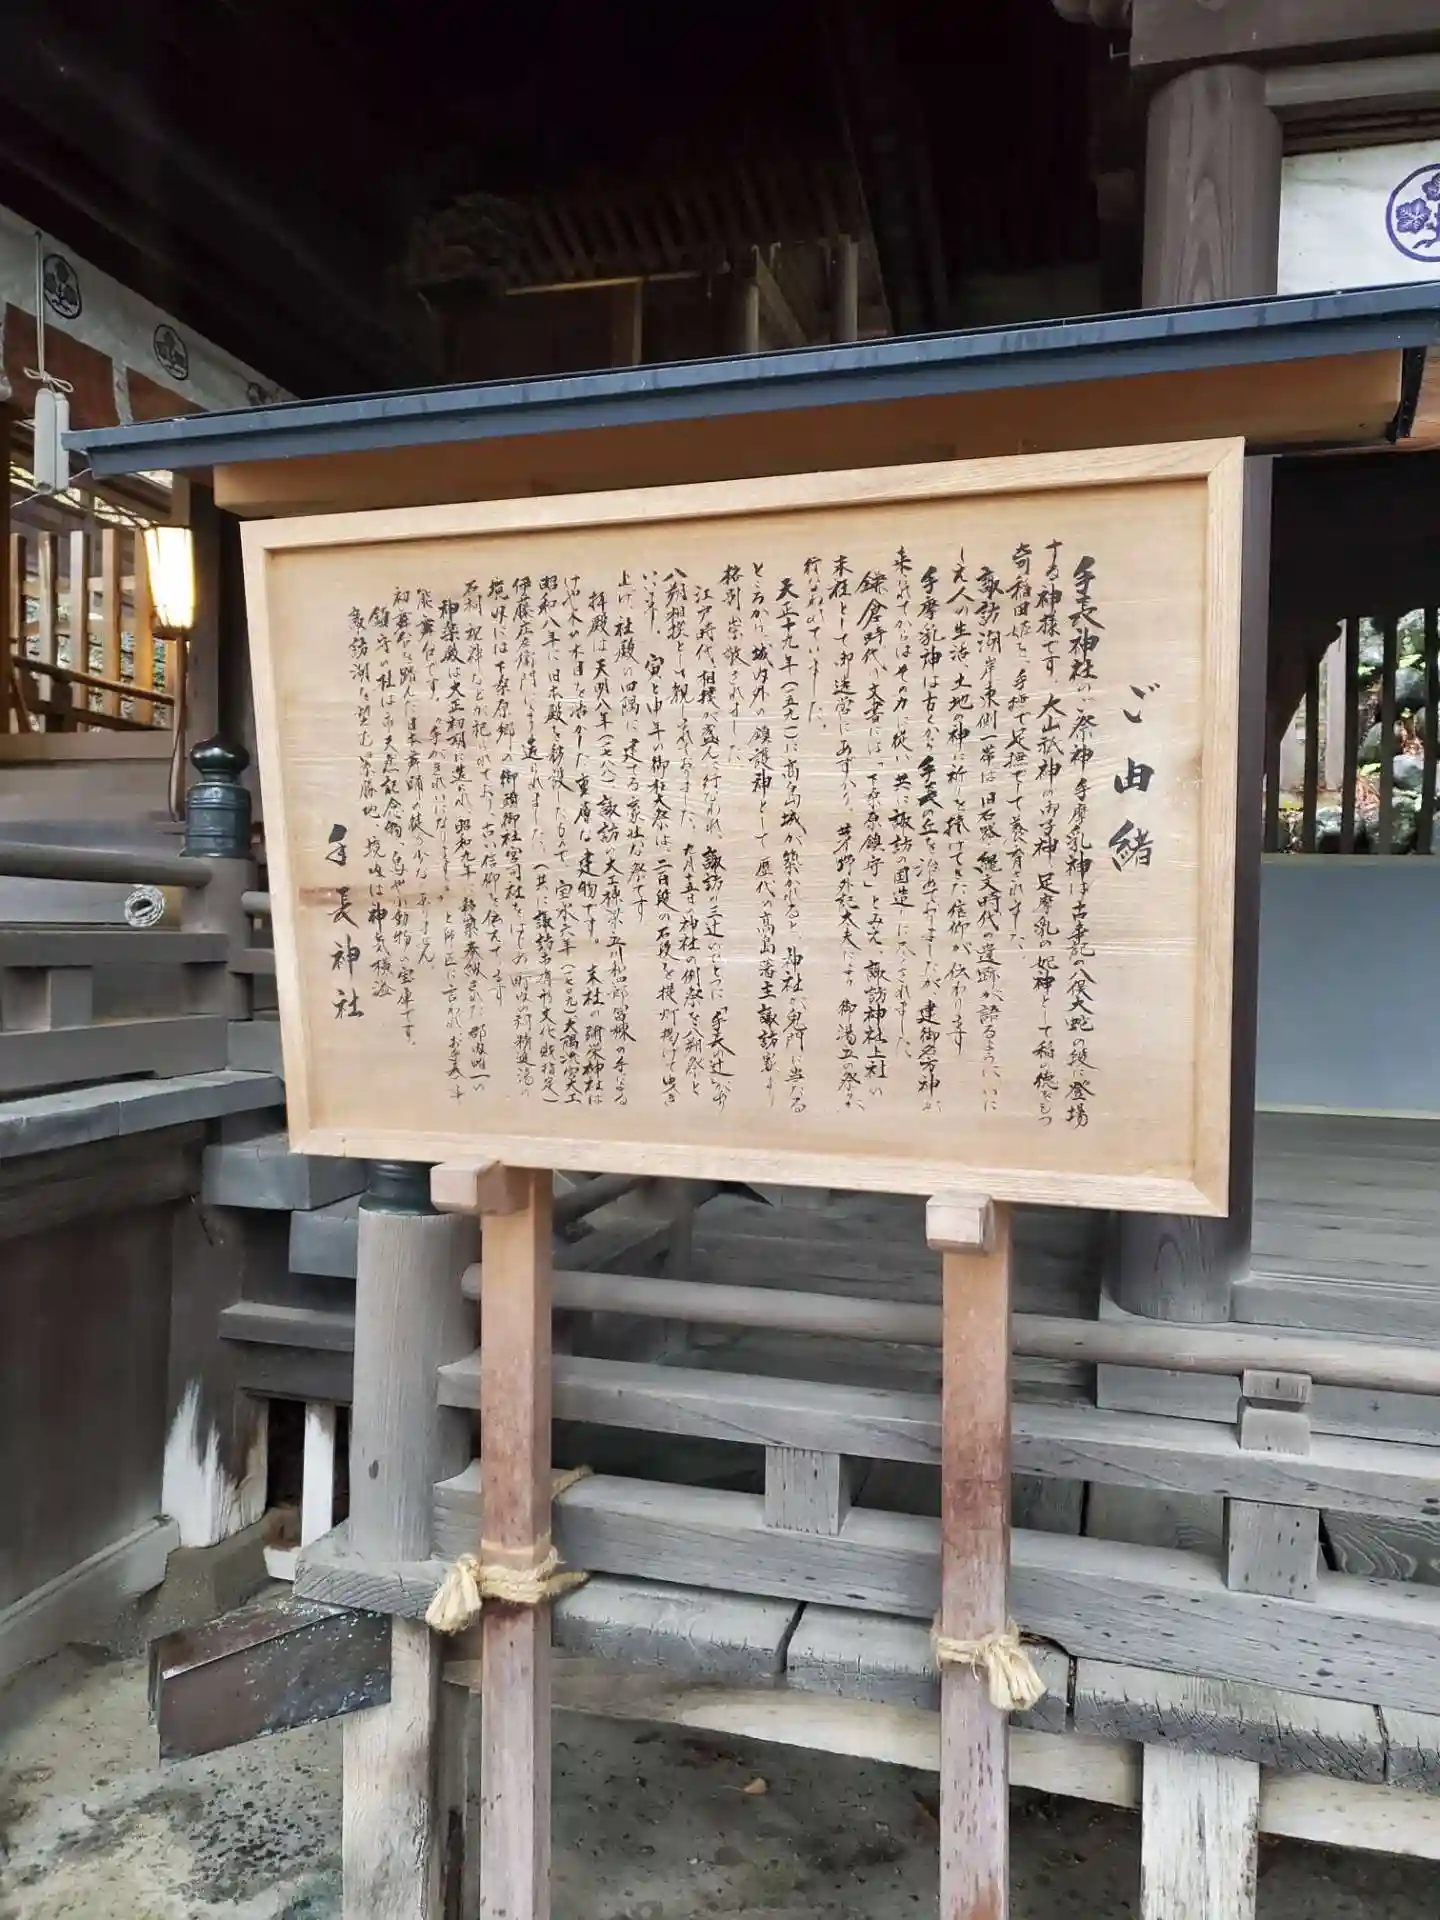 ご由緒
手長神社のご祭神 手摩乳神は古事記の八俣大蛇の段に登場
する神様です。大山祇神の御子神、足摩乳の妃神として稲の徳をもつ
奇稲田姫を、手撫で足撫でして養育されました。
諏訪湖岸東側一帯は旧石器、縄文時代の遺跡が語るように、いにし
え人の生活、土地の神に祈りを捧げてきた信仰が伝わります
手摩乳神は古くから手長の丘を治めておりましたが、建御名方神が
来られてからはその力に従い共に諏訪の国造りに尽されました。
鎌倉時代の文書には「下桑原鎮守」とみえ、諏訪神社上社の
末社として御造営にあずかり、茅野外記大夫により御湯立の祭が
行なわれていました。
天正十九年(一五九一)に高島城が築かれると、神社が鬼門に当たる
ところから、城内外の鎮護神として歴代の高島藩主諏訪家より
格別崇敬されました
江戸時代、相撲が盛んに行なわれ、諏訪の三辻のひとつに「手長の辻」があり
八朔相撲として親しまれておりました。九月十五日の神社の例祭を八朔祭と
いいます。寅と申年の御柱大祭は二百段の石段を提灯掲げて曳き
上げ、社殿の四隅に建てる豪壮な祭です
拝殿は天明八年(一七八八)諏訪の大工棟梁 立川和四郎冨棟の手になる
けやきの木目を活かした重厚な建物です。末社の弥栄神社は
昭和八年に旧本殿を移設したもので、宝永六年(一七〇九)大隅流宮大工
伊藤庄左衛門により造られました。(共に諏訪市有形文化財指定)
境内には下桑原郷の御頭御社宮司社をはじめ町内の精進湯の
石祠、祝神などが祀られており、古い信仰を伝えています
神楽殿は大正初期に造られ、昭和九年に移築奉納された郡内唯一の
能舞台です。「手がきれいになりますよ」と師匠に言われ、お手長さまで
初舞台を踏んだ日本舞踊の徒も少なくありません
鎮守の杜は市天然記念物、鳥や小動物の宝庫です。
諏訪湖を望む景勝地、境内は神気横溢
手長神社